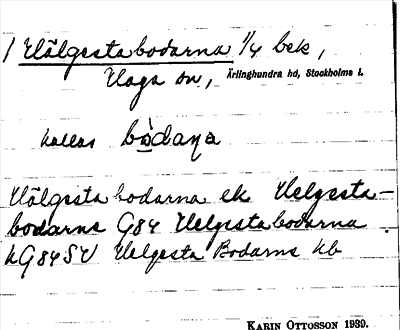 / Välgestabodarna 1/4 bek,
Haga sn, Ärlinghundra hd, Stockholms l.
kallas bòdaṇa
Välgestabodarna ek Velgesta-
bodarne G84 Velgestabodarna
kG84SV Velgesta Bodarne kb
KARIN OTTOSSON 1939.